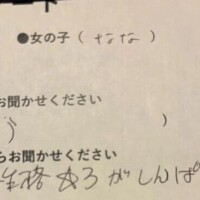 ●女の子（なな）
お聞かせください
）
らお聞かせください
性格めろがしんぱ